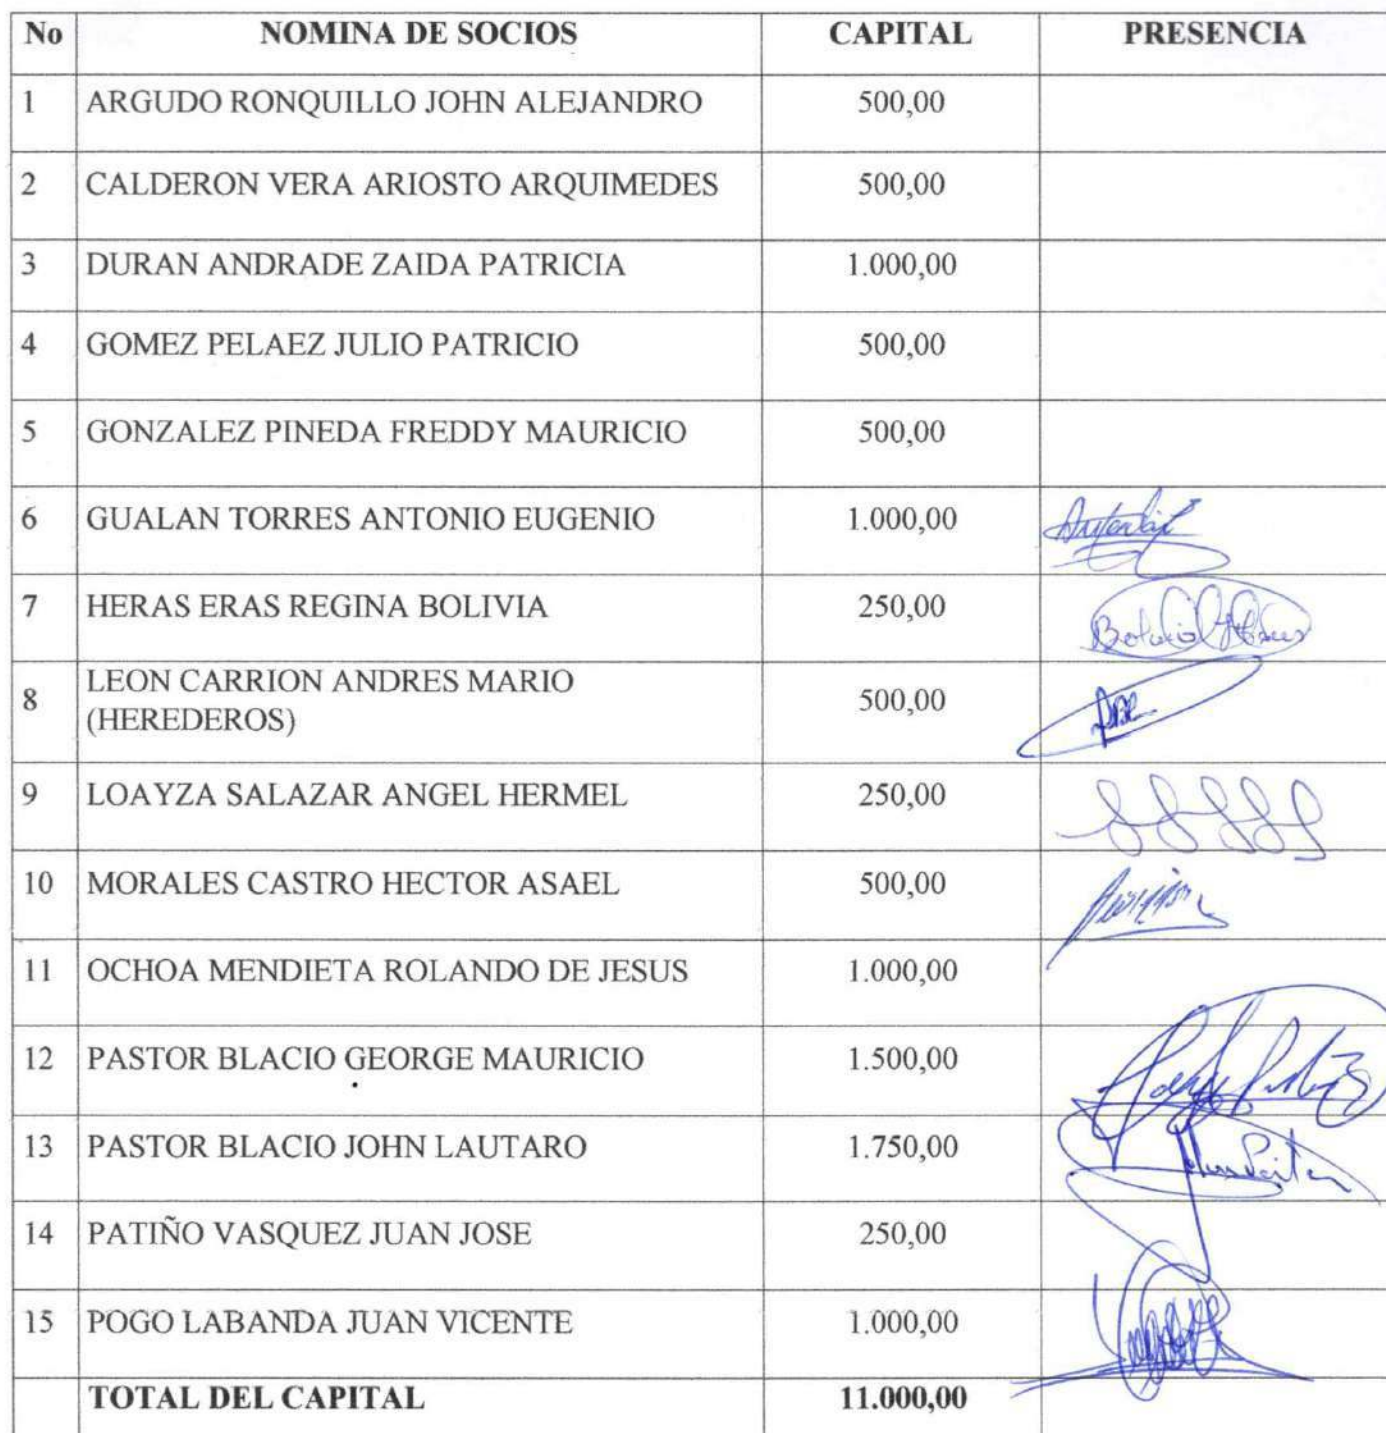 No NOMINA DE SOCIOS CAPITAL PRESENCIA
1 ARGUDO RONQUILLO JOHN ALEJANDRO 500,00
2 CALDERON VERA ARIOSTO ARQUIMEDES 500,00
3 DURAN ANDRADE ZAIDA PATRICIA 1.000,00
4 GOMEZ PELAEZ JULIO PATRICIO 500,00
5 GONZALEZ PINEDA FREDDY MAURICIO 500,00
6 GUALAN TORRES ANTONIO EUGENIO 1.000,00
7 HERAS ERAS REGINA BOLIVIA 250,00
8 LEON CARRION ANDRES MARIO
(HEREDEROS) 500,00
9 LOAYZA SALAZAR ANGEL HERMEL 250,00
10 MORALES CASTRO HECTOR ASAEL 500,00
11 OCHOA MENDIETA ROLANDO DE JESUS 1.000,00
12 PASTOR BLACIO GEORGE MAURICIO 1.500,00
13 PASTOR BLACIO JOHN LAUTARO 1.750,00
14 PATIÑO VASQUEZ JUAN JOSE 250,00
15 POGO LABANDA JUAN VICENTE 1.000,00
TOTAL DEL CAPITAL 11.000,00